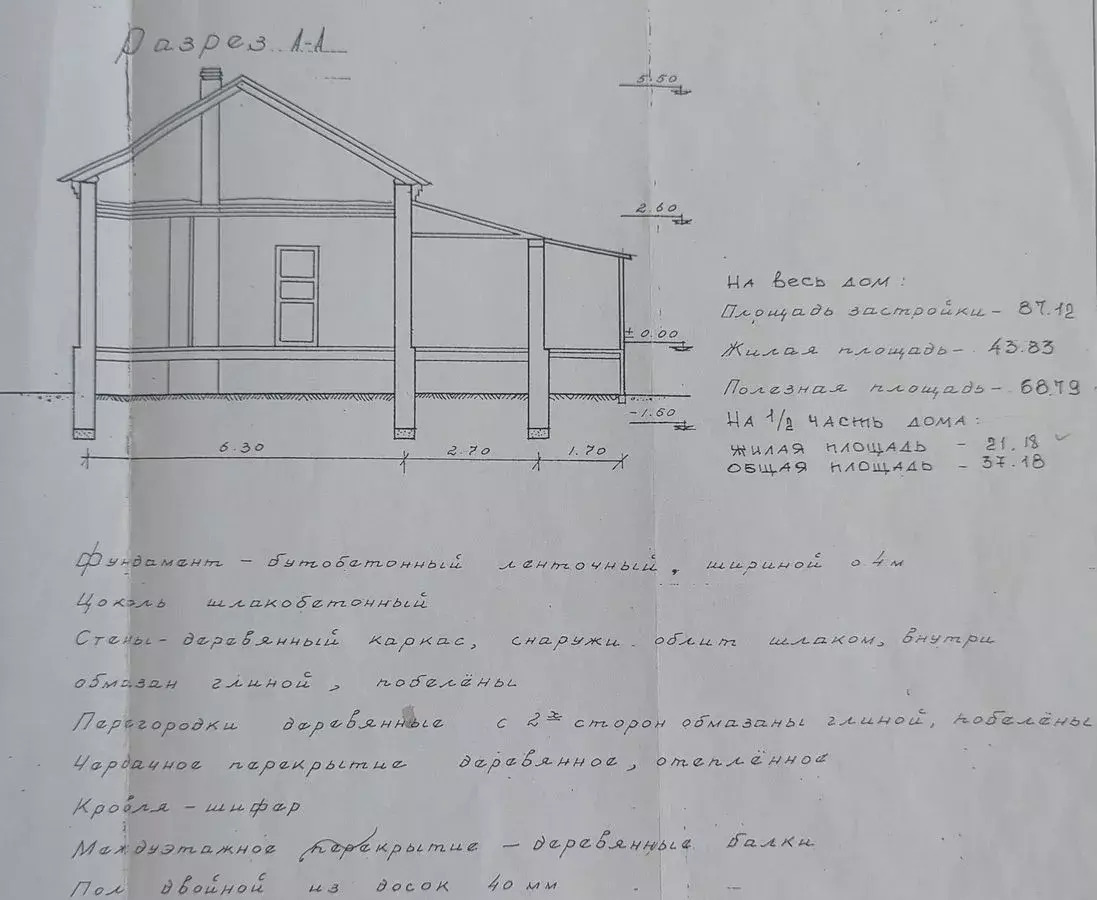 Разрез А-А
5.50
2.60
± 0.00
-1.60
6.30 2.70 1.70
На весь дом:
Площадь застройки - 87.12
Жилая площадь - 43.83
Полезная площадь - 68.79
На 1/2 часть дома:
жилая площадь - 21.18
общая площадь - 37.18
Фундамент - бутобетонный ленточный, шириной 0.4 м
Цоколь шлакобетонный
Стены - деревянный каркас, снаружи облит шлаком, внутри
обмазан глиной, побелёны
Перегородки деревянные с 2х сторон обмазаны глиной, побелёны
Чердачное перекрытие деревянное, отеплённое
Кровля - шифер
Междуэтажное перекрытие - деревянные балки
Пол двойной из досок 40 мм